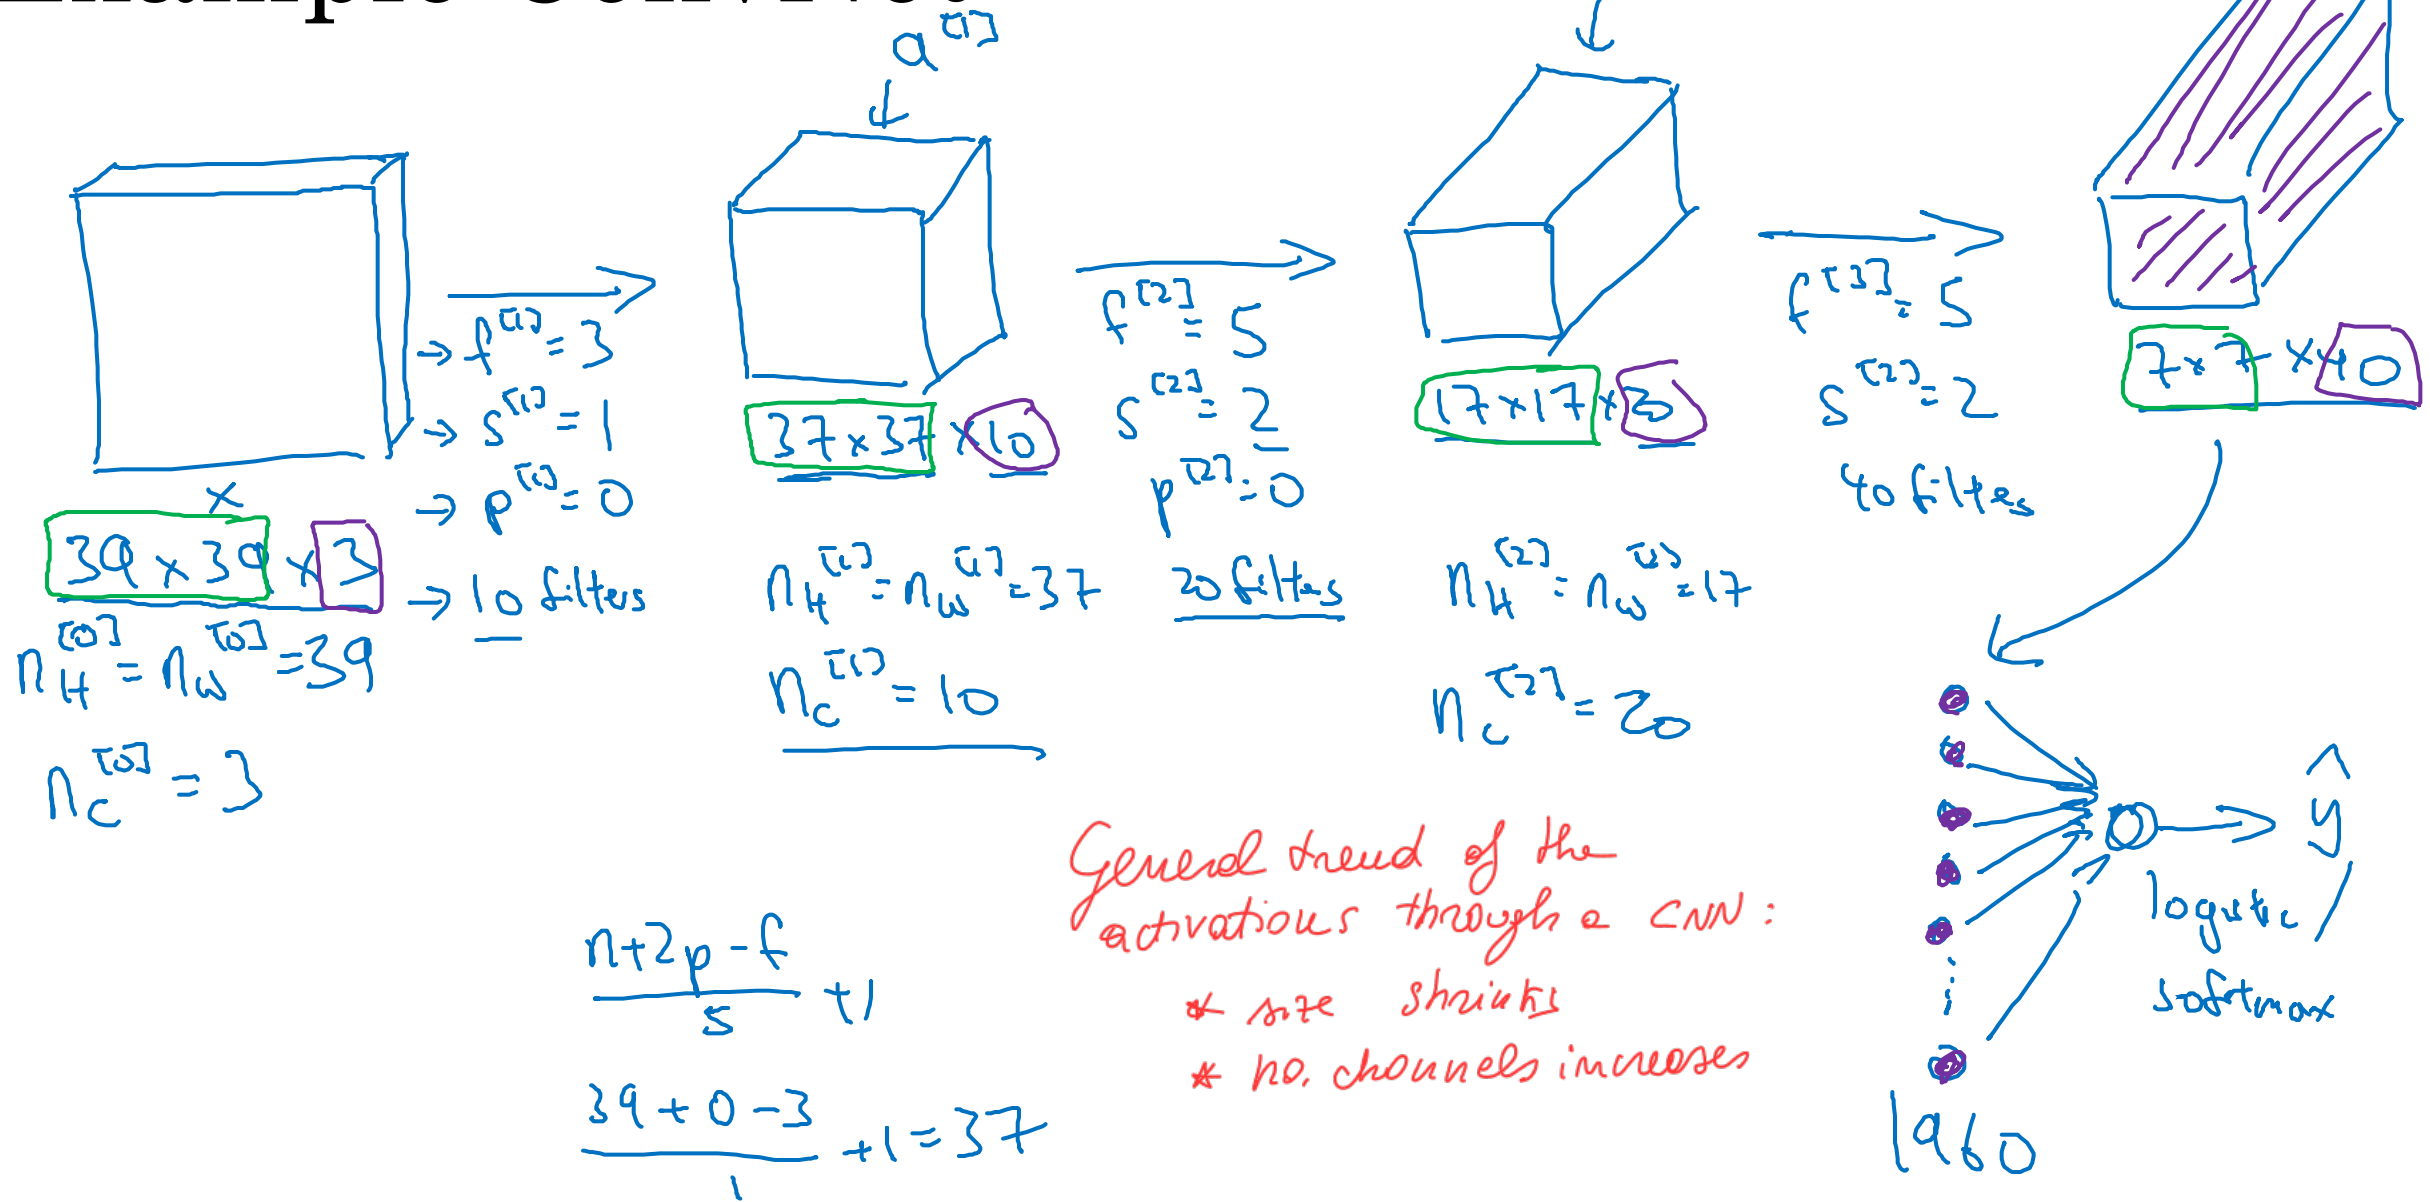 Example ConvNet
a^[1]
x
39 x 39 x 3
n_H^[0] = n_W^[0] = 39
n_C^[0] = 3
→ f^[1] = 3
→ s^[1] = 1
→ p^[1] = 0
→ 10 filters
37 x 37 x 10
n_H^[1] = n_W^[1] = 37
n_C^[1] = 10
f^[2] = 5
s^[2] = 2
p^[2] = 0
20 filters
17 x 17 x 20
n_H^[2] = n_W^[2] = 17
n_C^[2] = 20
f^[3] = 5
s^[2] = 2
40 filters
7 x 7 x 40
1960
logistic
softmax
ŷ
(n+2p-f)/s +1
(39+0-3)/1 +1 = 37
General trend of the
activations through a CNN:
* size shrinks
* no. channels increases